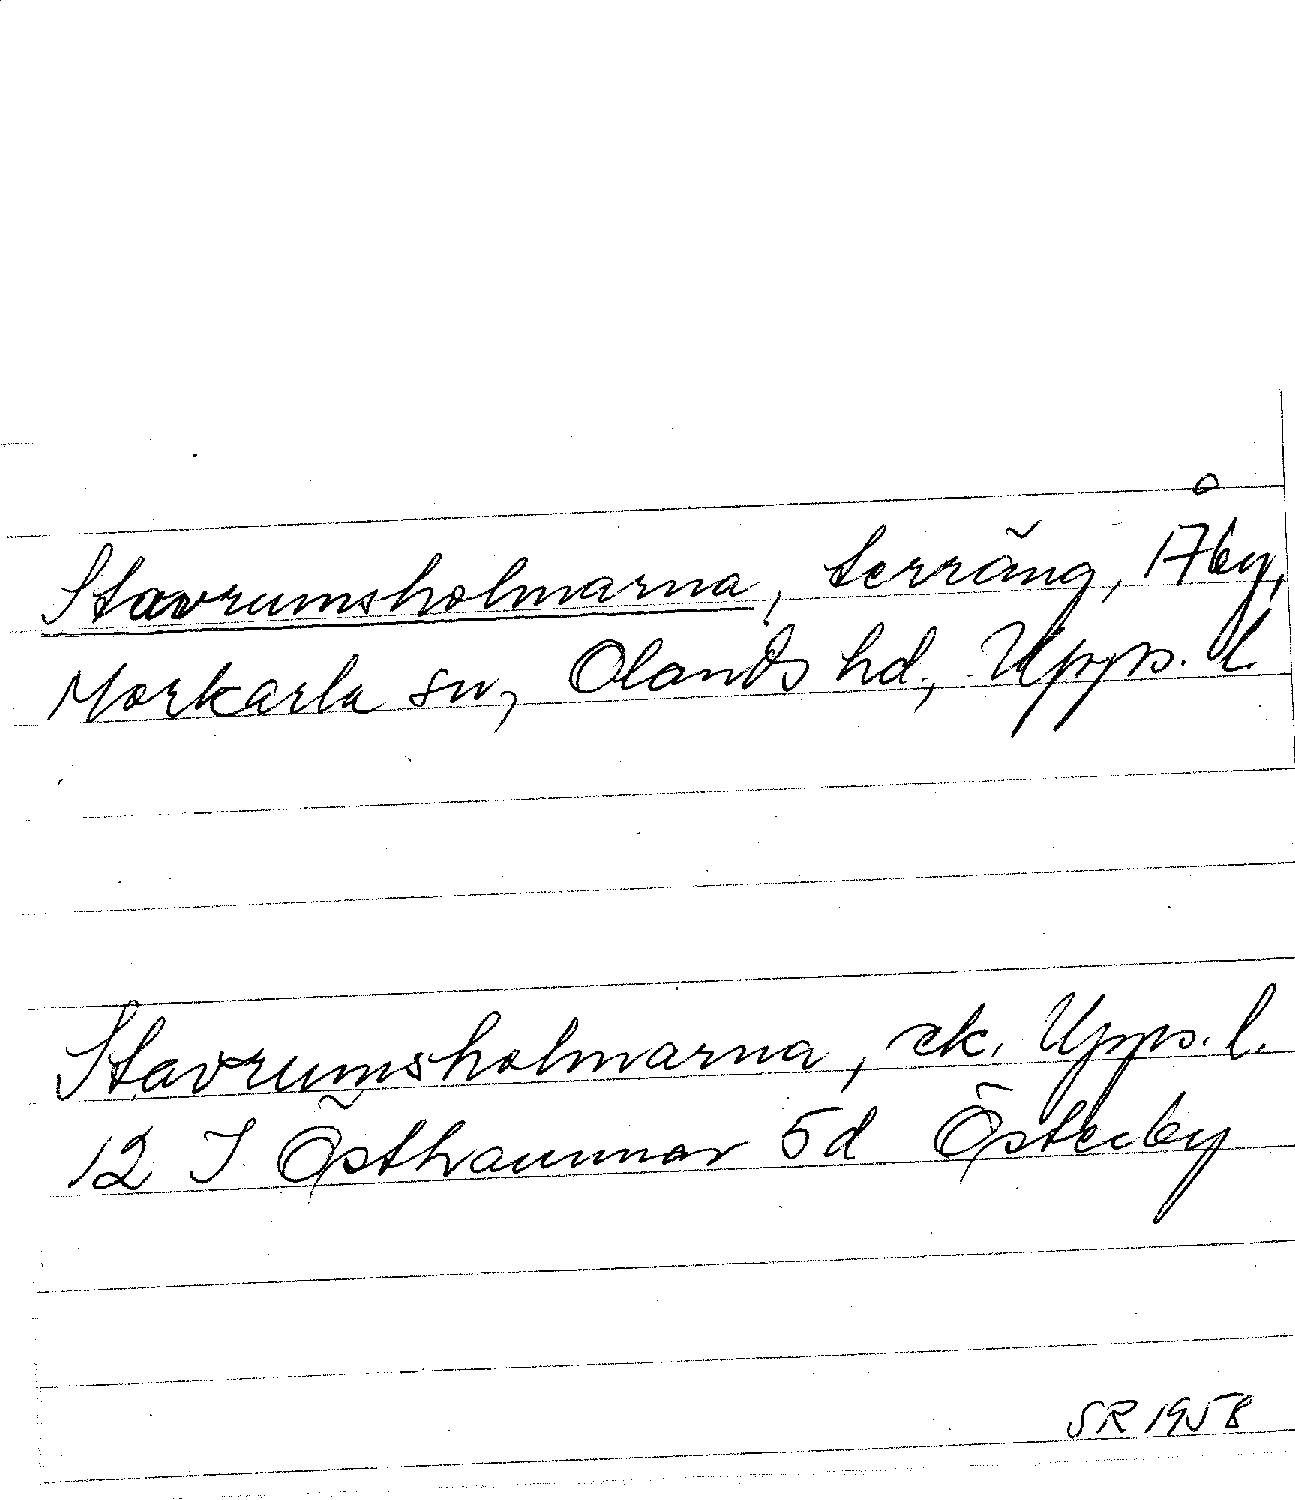 Stavrumsholmarna, terräng, 17by,
Morkarla sn, Olands hd., Upps. l.
Stavrumsholmarna, ek. Upps. l.
12 I Östhammar 5d Österby
SR 1958